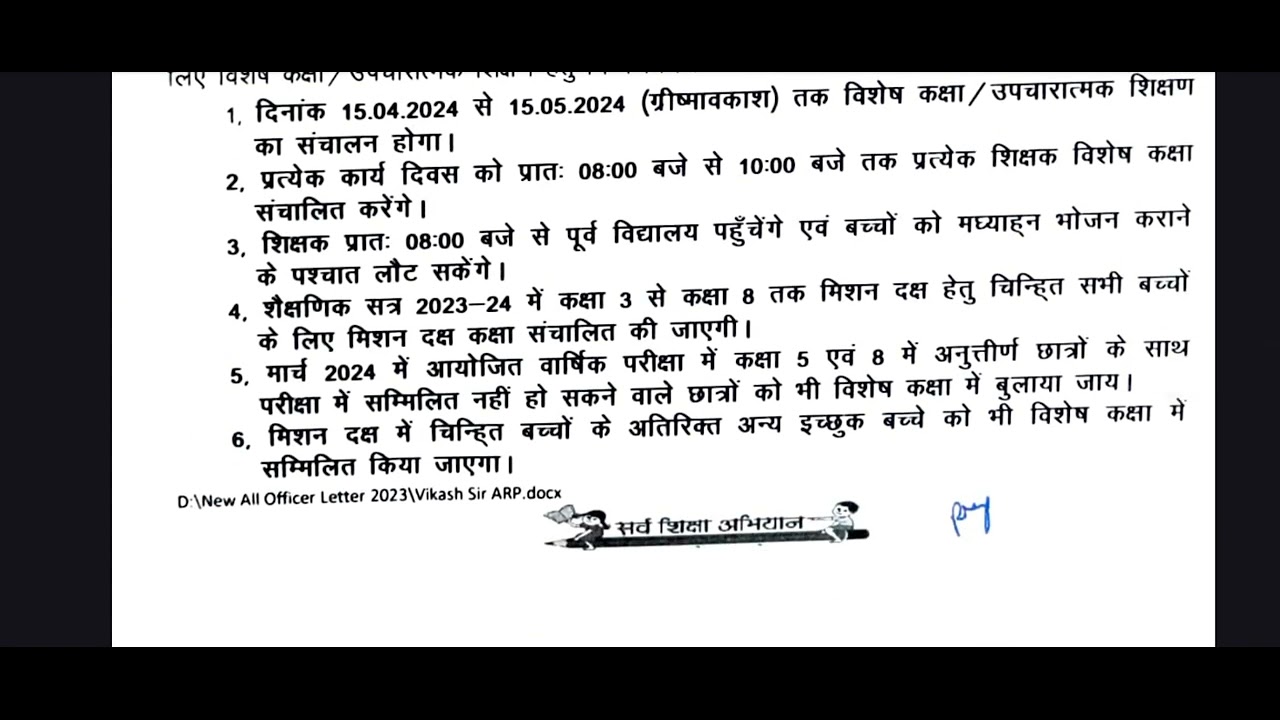 लिए विशेष कक्षा/उपचारात्मक शिक्षण हेतु
1. दिनांक 15.04.2024 से 15.05.2024 (ग्रीष्मावकाश) तक विशेष कक्षा/उपचारात्मक शिक्षण
का संचालन होगा।
2. प्रत्येक कार्य दिवस को प्रातः 08:00 बजे से 10:00 बजे तक प्रत्येक शिक्षक विशेष कक्षा
संचालित करेंगे।
3. शिक्षक प्रातः 08:00 बजे से पूर्व विद्यालय पहुँचेंगे एवं बच्चों को मध्याह्न भोजन कराने
के पश्चात लौट सकेंगे।
4. शैक्षणिक सत्र 2023–24 में कक्षा 3 से कक्षा 8 तक मिशन दक्ष हेतु चिन्हित सभी बच्चों
के लिए मिशन दक्ष कक्षा संचालित की जाएगी।
5. मार्च 2024 में आयोजित वार्षिक परीक्षा में कक्षा 5 एवं 8 में अनुत्तीर्ण छात्रों के साथ
परीक्षा में सम्मिलित नहीं हो सकने वाले छात्रों को भी विशेष कक्षा में बुलाया जाय।
6. मिशन दक्ष में चिन्हित बच्चों के अतिरिक्त अन्य इच्छुक बच्चे को भी विशेष कक्षा में
सम्मिलित किया जाएगा।
D:\New All Officer Letter 2023\Vikash Sir ARP.docx
सर्व शिक्षा अभियान